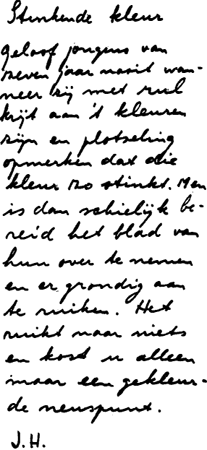 Stinkende kleur
Geloof jongens van
zeven jaar nooit wan-
neer zij met rul
krijt aan 't kleuren
zijn en plotseling
opmerken dat die
kleur zo stinkt. Men
is dan schielijk be-
reid het blad van
hun over te nemen
en er grondig aan
te ruiken. Het
ruikt naar niets
en kost u alleen
maar een gekleur-
de neuspunt.
J.H.